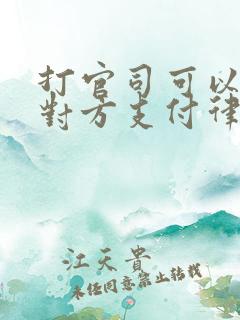 打官司可以
對方支付律
江天貴
未經同意禁止轉載